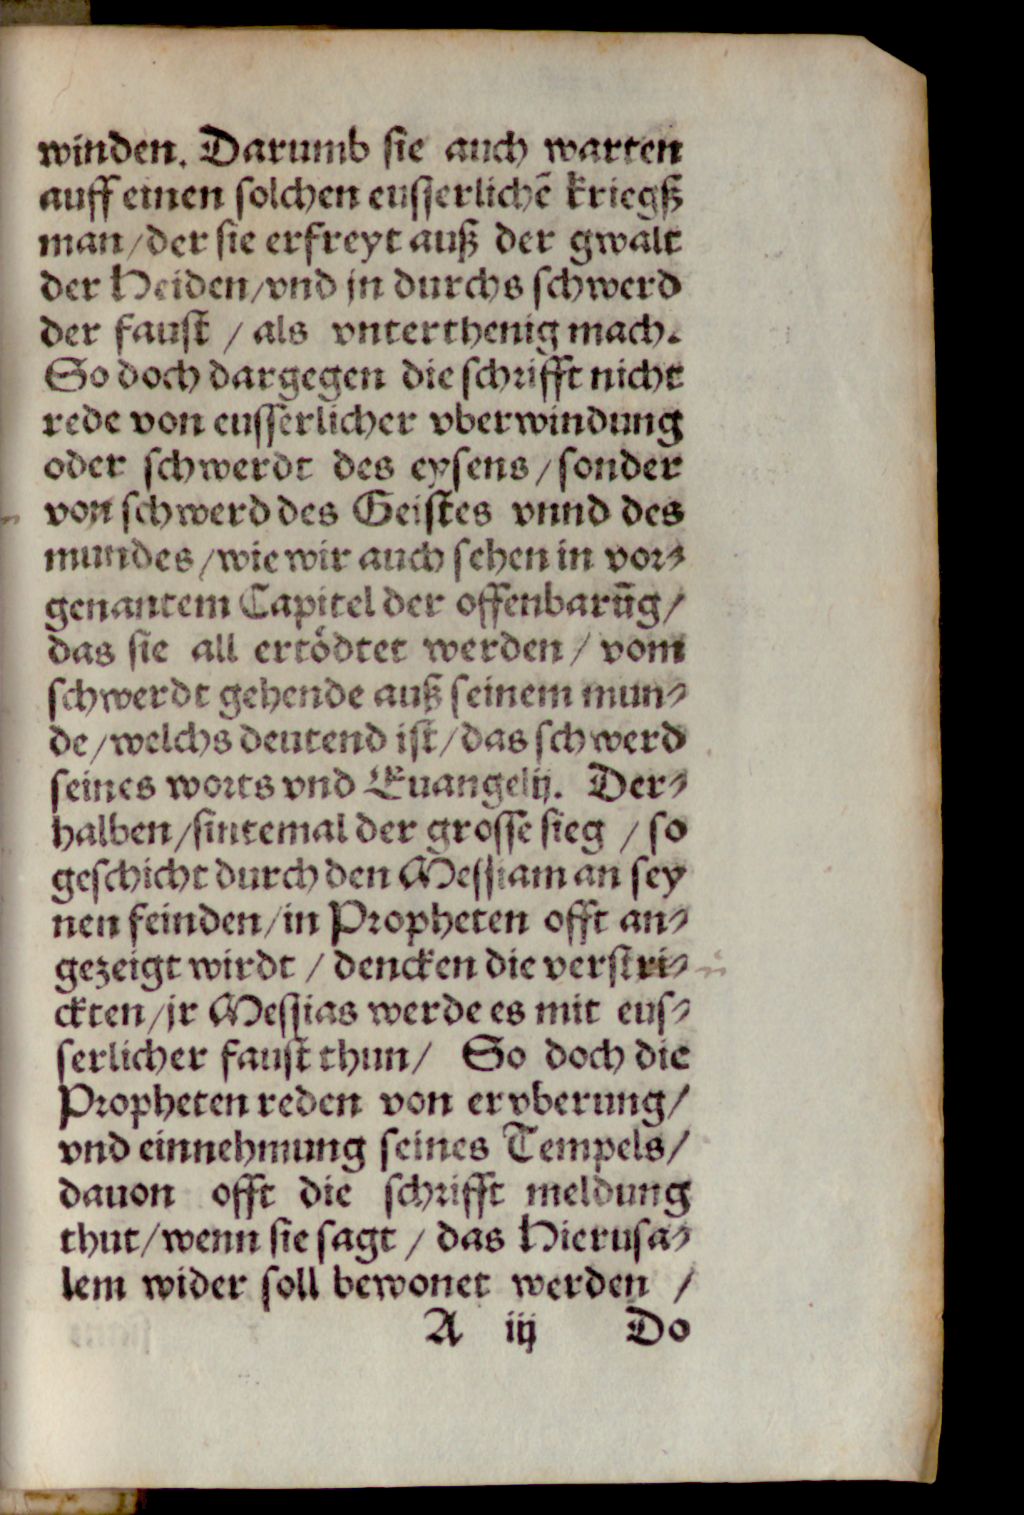 winden. Darumb sie auch warten
auff einen solchen eusserlichē kriegß
man / der sie erfreyt auß der gwalt
der Heiden / vnd jn durchs schwerd
der faust / als vnterthenig mach.
So doch dargegen die schrifft nicht
rede von eusserlicher vberwindung
oder schwerdt des eysens / sonder
von schwerd des Geistes vnnd des
mundes / wie wir auch sehen in vor⸗
genantem Capitel der offenbarūg /
das sie all ertödtet werden / vom
schwerdt gehende auß seinem mun⸗
de / welchs deutend ist / das schwerd
seines worts vnd Euangelij. Der⸗
halben / sintemal der grosse sieg / so
geschicht durch den Messiam an sey
nen feinden / in Propheten offt an⸗
gezeigt wirdt / dencken die verstri⸗
ckten / jr Messias werde es mit eus⸗
serlicher faust thun / So doch die
Propheten reden von ervberung /
vnd einnehmung seines Tempels /
dauon offt die schrifft meldung
thut / wenn sie sagt / das Hierusa⸗
lem wider soll bewonet werden /
A iij Do